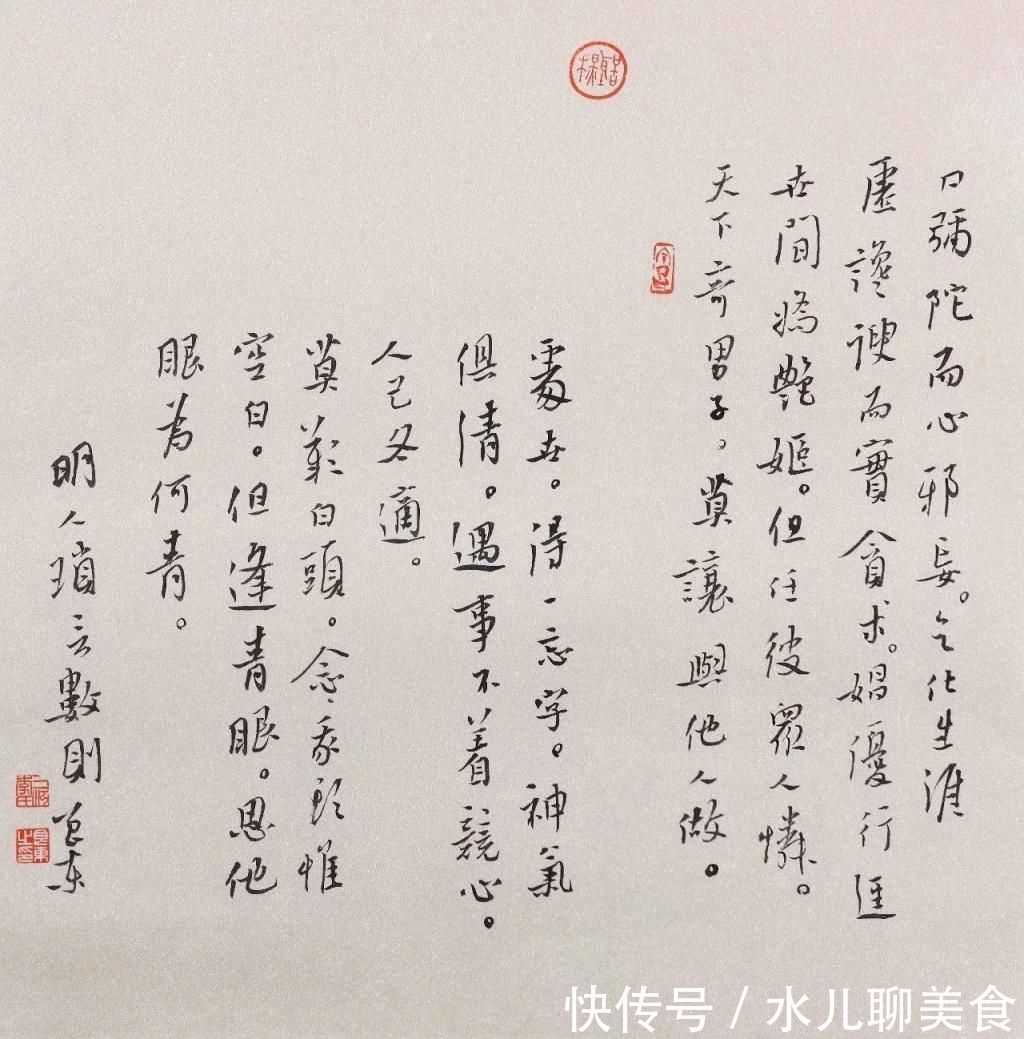 口彌陀而心邪妄。乞化生涯
虛讒諛而實貪求。娼優行逕
世間嬌艷嫗。但任彼眾人憐。
天下奇男子。莫讓與他人做。
處世。得一忘字。神氣
俱清。遇事不着競心。
人己各適。
莫歎白頭。念我頭惟
空白。但逢青眼。思他
眼為何青。
明人瑣言數則
快传号 / 水儿聊美食